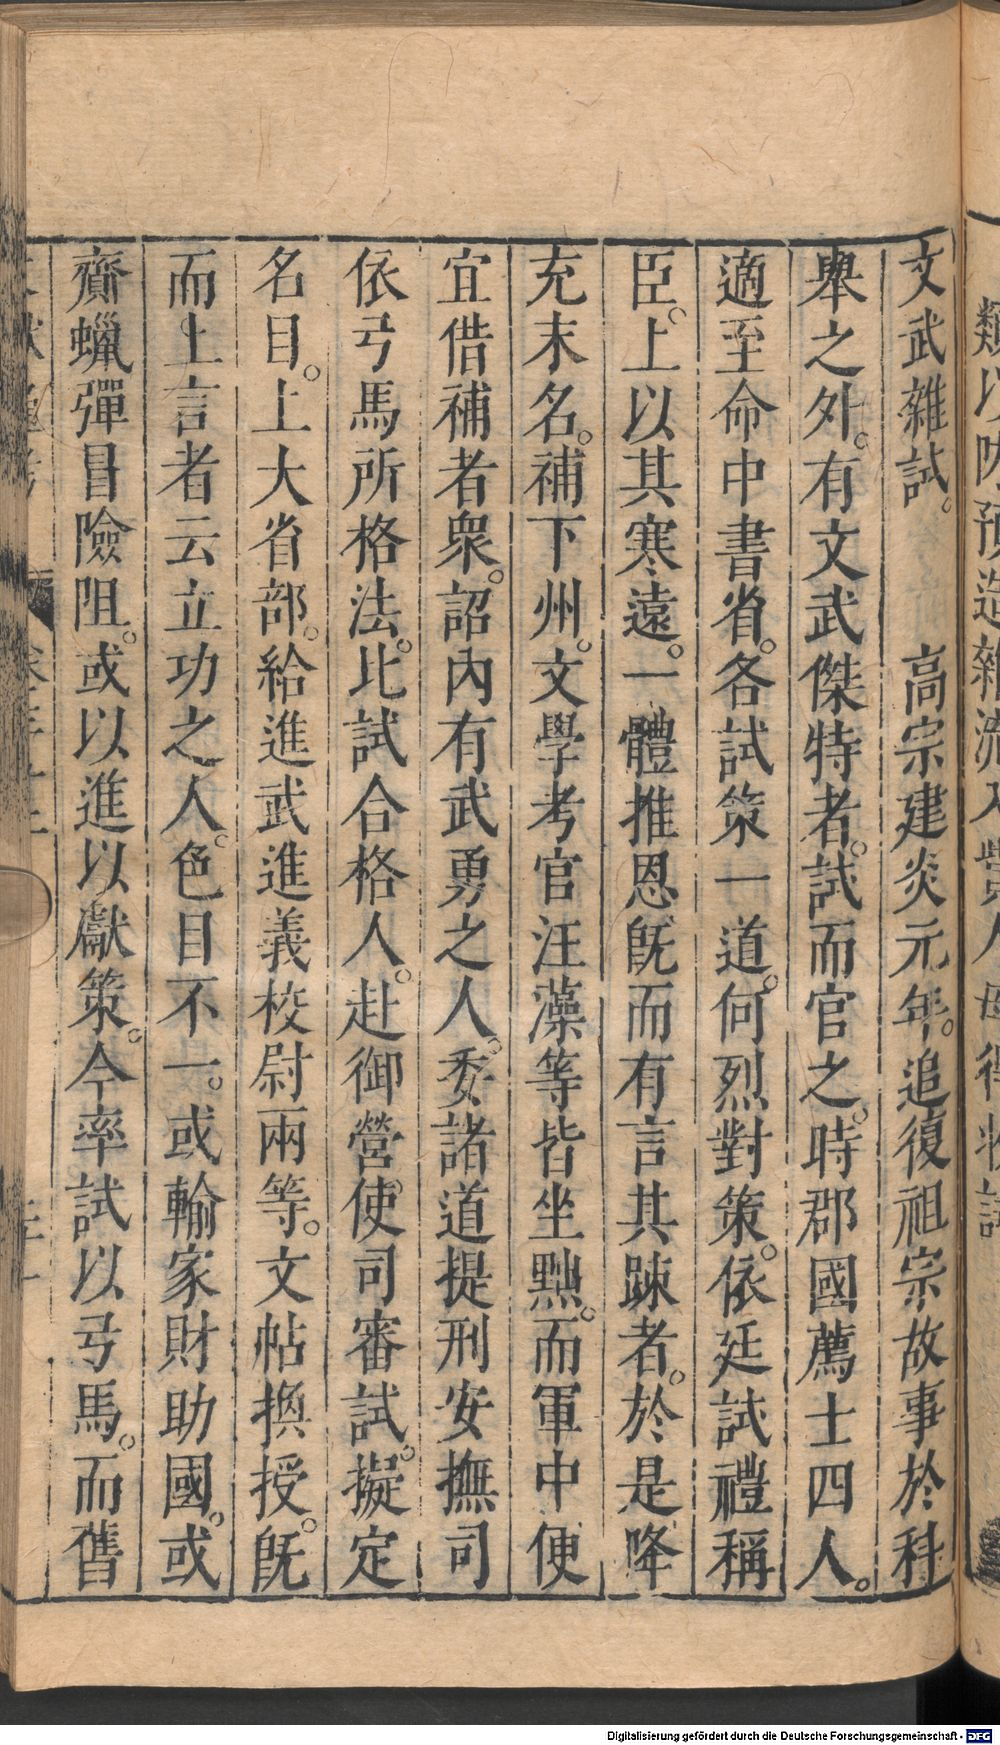 文武雜試。　高宗建炎元年。追復祖宗故事於科
舉之外。有文武傑特者。試而官之。時郡國薦士四人。
適至命中書省。各試策一道。何烈對策。依廷試禮稱
臣。上以其寒遠。一體推恩旣而有言其踈者。於是降
充末名。補下州。文學考官汪藻等皆坐黜。而軍中便
宜借補者衆。詔內有武勇之人。委諸道提刑安撫司
依弓馬所格法。比試合格人。赴御營。使司審試。擬定
名目。上大省部。給進武進義校尉兩等。文帖換授。旣
而上言者云立功之人。色目不一。或輸家財助國。或
齎蠟彈冒險阻。或以進以獻策。今率試以弓馬。而舊
類以
預造雜流入
得
Digitalisierung gefördert durch die Deutsche Forschungsgemeinschaft - DFG